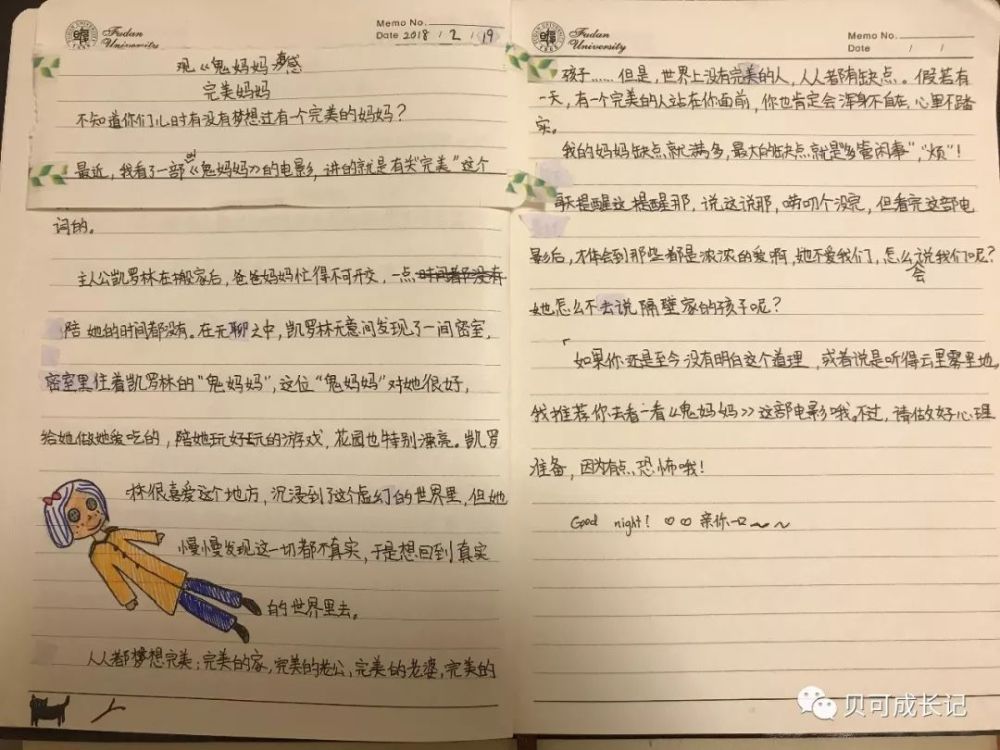 Fudan University
Memo No.
Date 2018 / 2 / 19
观《鬼妈妈》有感
完美妈妈
不知道你们儿时有没有梦想过有一个完美的妈妈？
最近，我看了一部叫《鬼妈妈》的电影，讲的就是有关“完美”这个
词的。
主人公凯罗林在搬家后，爸爸妈妈忙得不可开交，一点时间都没有
陪她的时间都没有。在无聊之中，凯罗林无意间发现了一间密室，
密室里住着凯罗林的“鬼妈妈”，这位“鬼妈妈”对她很好，
给她做她爱吃的，陪她玩好玩的游戏，花园也特别漂亮。凯罗
林很喜爱这个地方，沉浸到了这个虚幻的世界里，但她
慢慢发现这一切都不真实，于是想回到真实
的世界里去。
人人都梦想完美：完美的家，完美的老公，完美的老婆，完美的
Fudan University
Memo No.
Date / /
孩子……但是，世界上没有完美的人，人人都有缺点。假若有
一天，有一个完美的人站在你面前，你也肯定会浑身不自在，心里不踏
实。
我的妈妈缺点就满多，最大的缺点就是“多管闲事”，“烦”！
天提醒这提醒那，说这说那，唠叨个没完，但看完这部电
影后，才体会到那些都是浓浓的爱啊，她不爱我们，怎么会说我们呢？
她怎么不去说隔壁家的孩子呢？
如果你还是至今没有明白这个道理，或者说是听得云里雾里地，
我推荐你去看一看《鬼妈妈》这部电影哦，不过，请做好心理
准备，因为有点恐怖哦！
Good night! 亲你一口～～
贝可成长记